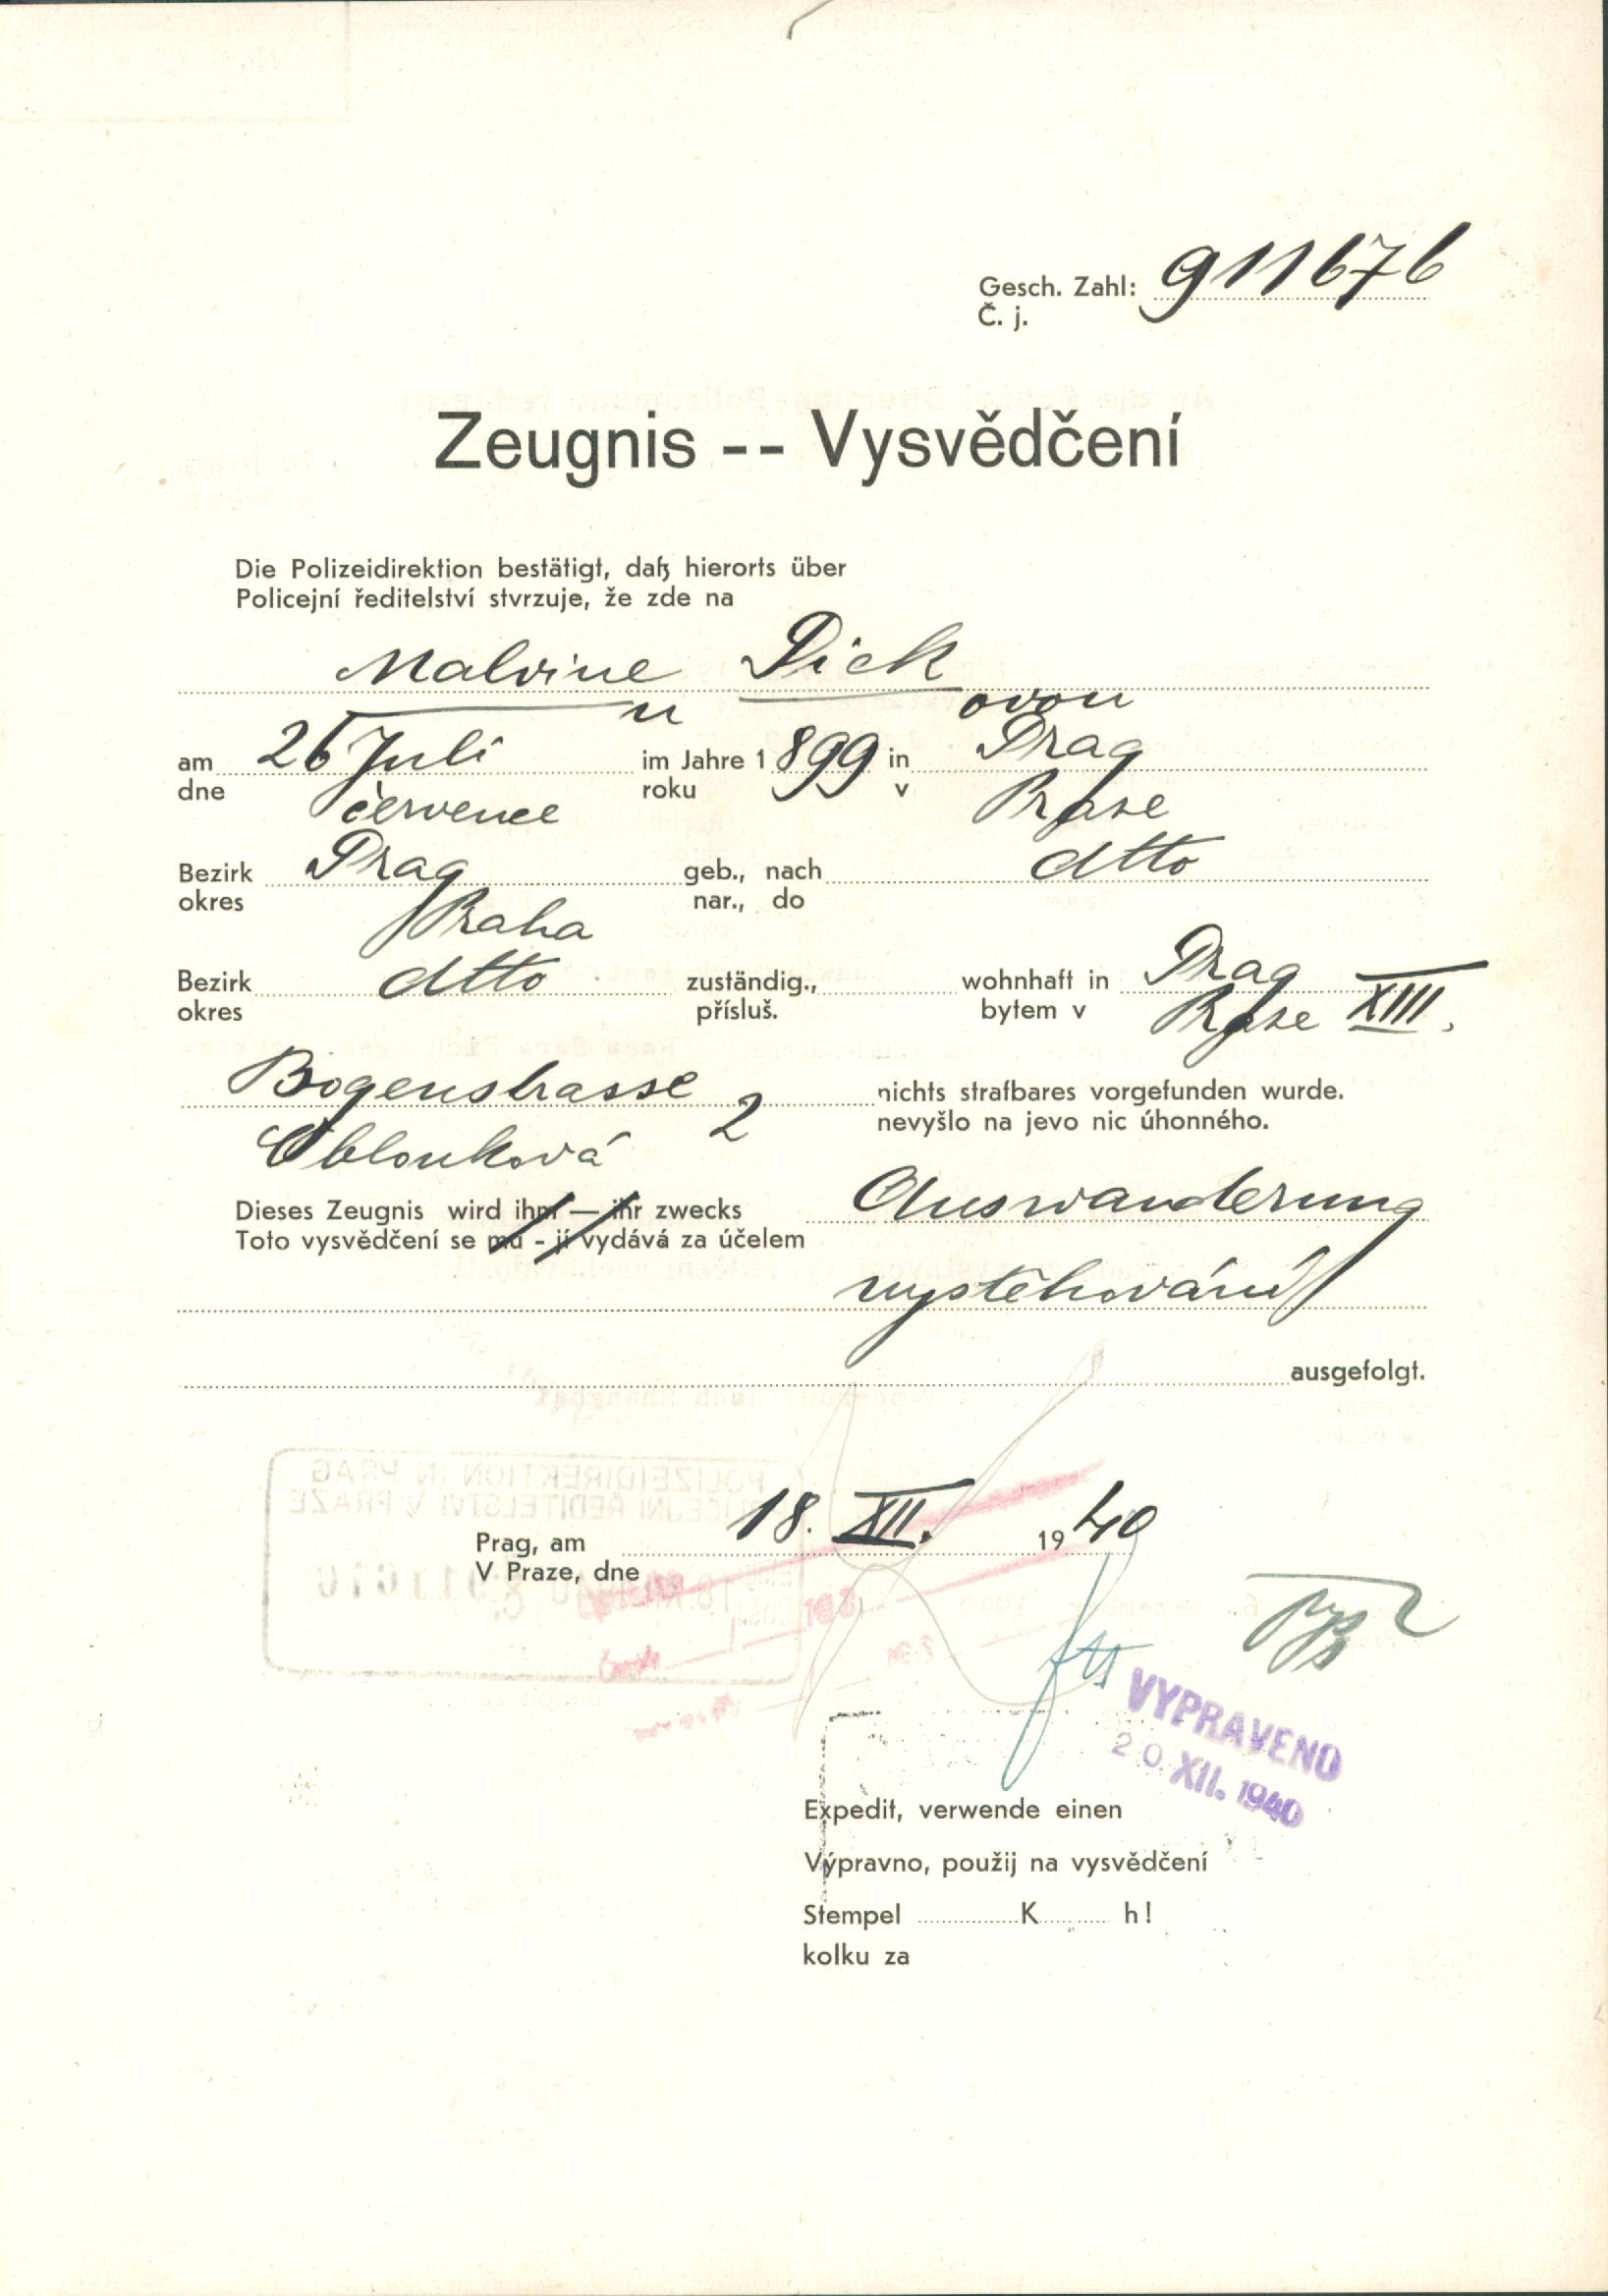 Gesch. Zahl: 911676
Č. j.
Zeugnis -- Vysvědčení
Die Polizeidirektion bestätigt, daß hierorts über
Policejní ředitelství stvrzuje, že zde na
Malvine Pick
u ovou
am 26 Juli im Jahre 1899 in Prag
dne července roku v Praze
Bezirk Prag geb., nach dtto
okres Praha nar., do
Bezirk dtto zuständig., wohnhaft in Prag
okres přísluš. bytem v Praze XIII.
Bogenstrasse 2 nichts strafbares vorgefunden wurde.
Oblouková nevyšlo na jevo nic úhonného.
Dieses Zeugnis wird ihm — ihr zwecks Auswanderung
Toto vysvědčení se mu - jí vydává za účelem
vystěhování
ausgefolgt.
POLIZEIDIREKTION IN PRAG
POLICEJNÍ ŘEDITELSTVÍ V PRAZE
Prag, am 18. XII. 1940
V Praze, dne
VYPRAVENO
20. XII. 1940
Expedit, verwende einen
Výpravno, použij na vysvědčení
Stempel K h!
kolku za